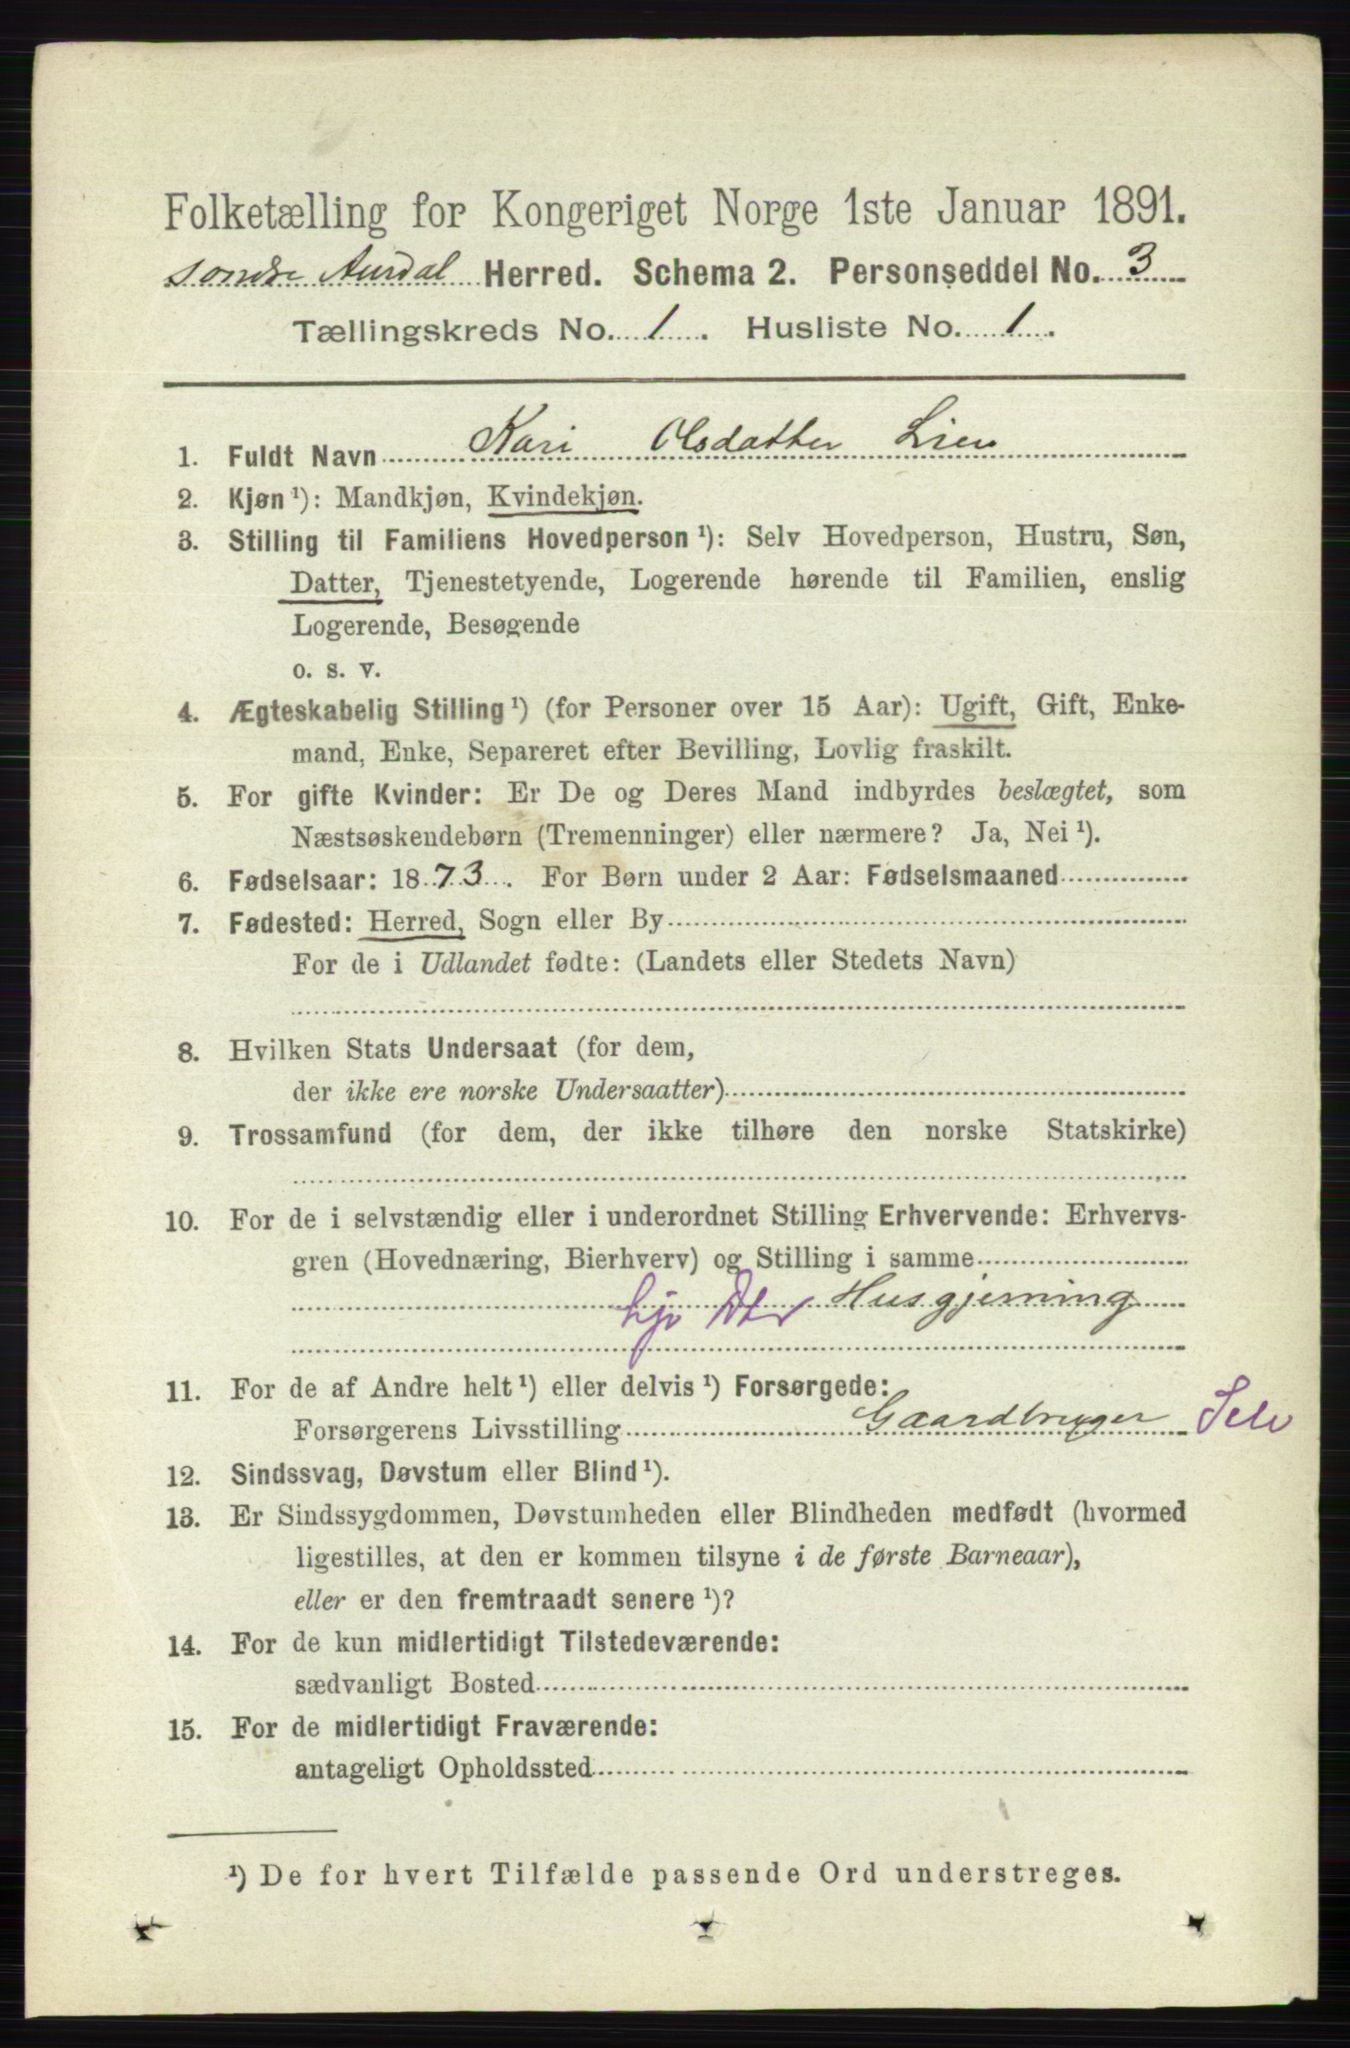 Folketælling for Kongeriget Norge 1ste Januar 1891.
Søndre Aurdal Herred. Schema 2. Personseddel No. 3
Tællingskreds No. 1. Husliste No. 1.
1. Fuldt Navn Kari Olsdatter Lien
2. Kjøn ¹): Mandkjøn, Kvindekjøn.
3. Stilling til Familiens Hovedperson ¹): Selv Hovedperson, Hustru, Søn,
Datter, Tjenestetyende, Logerende hørende til Familien, enslig
Logerende, Besøgende
o. s. v.
4. Ægteskabelig Stilling ¹) (for Personer over 15 Aar): Ugift, Gift, Enke-
mand, Enke, Separeret efter Bevilling, Lovlig fraskilt.
5. For gifte Kvinder: Er De og Deres Mand indbyrdes beslægtet, som
Næstsøskendebørn (Tremenninger) eller nærmere? Ja, Nei ¹).
6. Fødselsaar: 1873. For Børn under 2 Aar: Fødselsmaaned
7. Fødested: Herred, Sogn eller By
For de i Udlandet fødte: (Landets eller Stedets Navn)
8. Hvilken Stats Undersaat (for dem,
der ikke ere norske Undersaatter)
9. Trossamfund (for dem, der ikke tilhøre den norske Statskirke)
10. For de i selvstændig eller i underordnet Stilling Erhvervende: Erhvervs-
gren (Hovednæring, Bierhverv) og Stilling i samme
Dtr Husgjerning
11. For de af Andre helt ¹) eller delvis ¹) Forsørgede:
Forsørgerens Livsstilling Gaardbruger Selv
12. Sindssvag, Døvstum eller Blind ¹).
13. Er Sindssygdommen, Døvstumheden eller Blindheden medfødt (hvormed
ligestilles, at den er kommen tilsyne i de første Barneaar),
eller er den fremtraadt senere ¹)?
14. For de kun midlertidigt Tilstedeværende:
sædvanligt Bosted
15. For de midlertidigt Fraværende:
antageligt Opholdssted
¹) De for hvert Tilfælde passende Ord understreges.